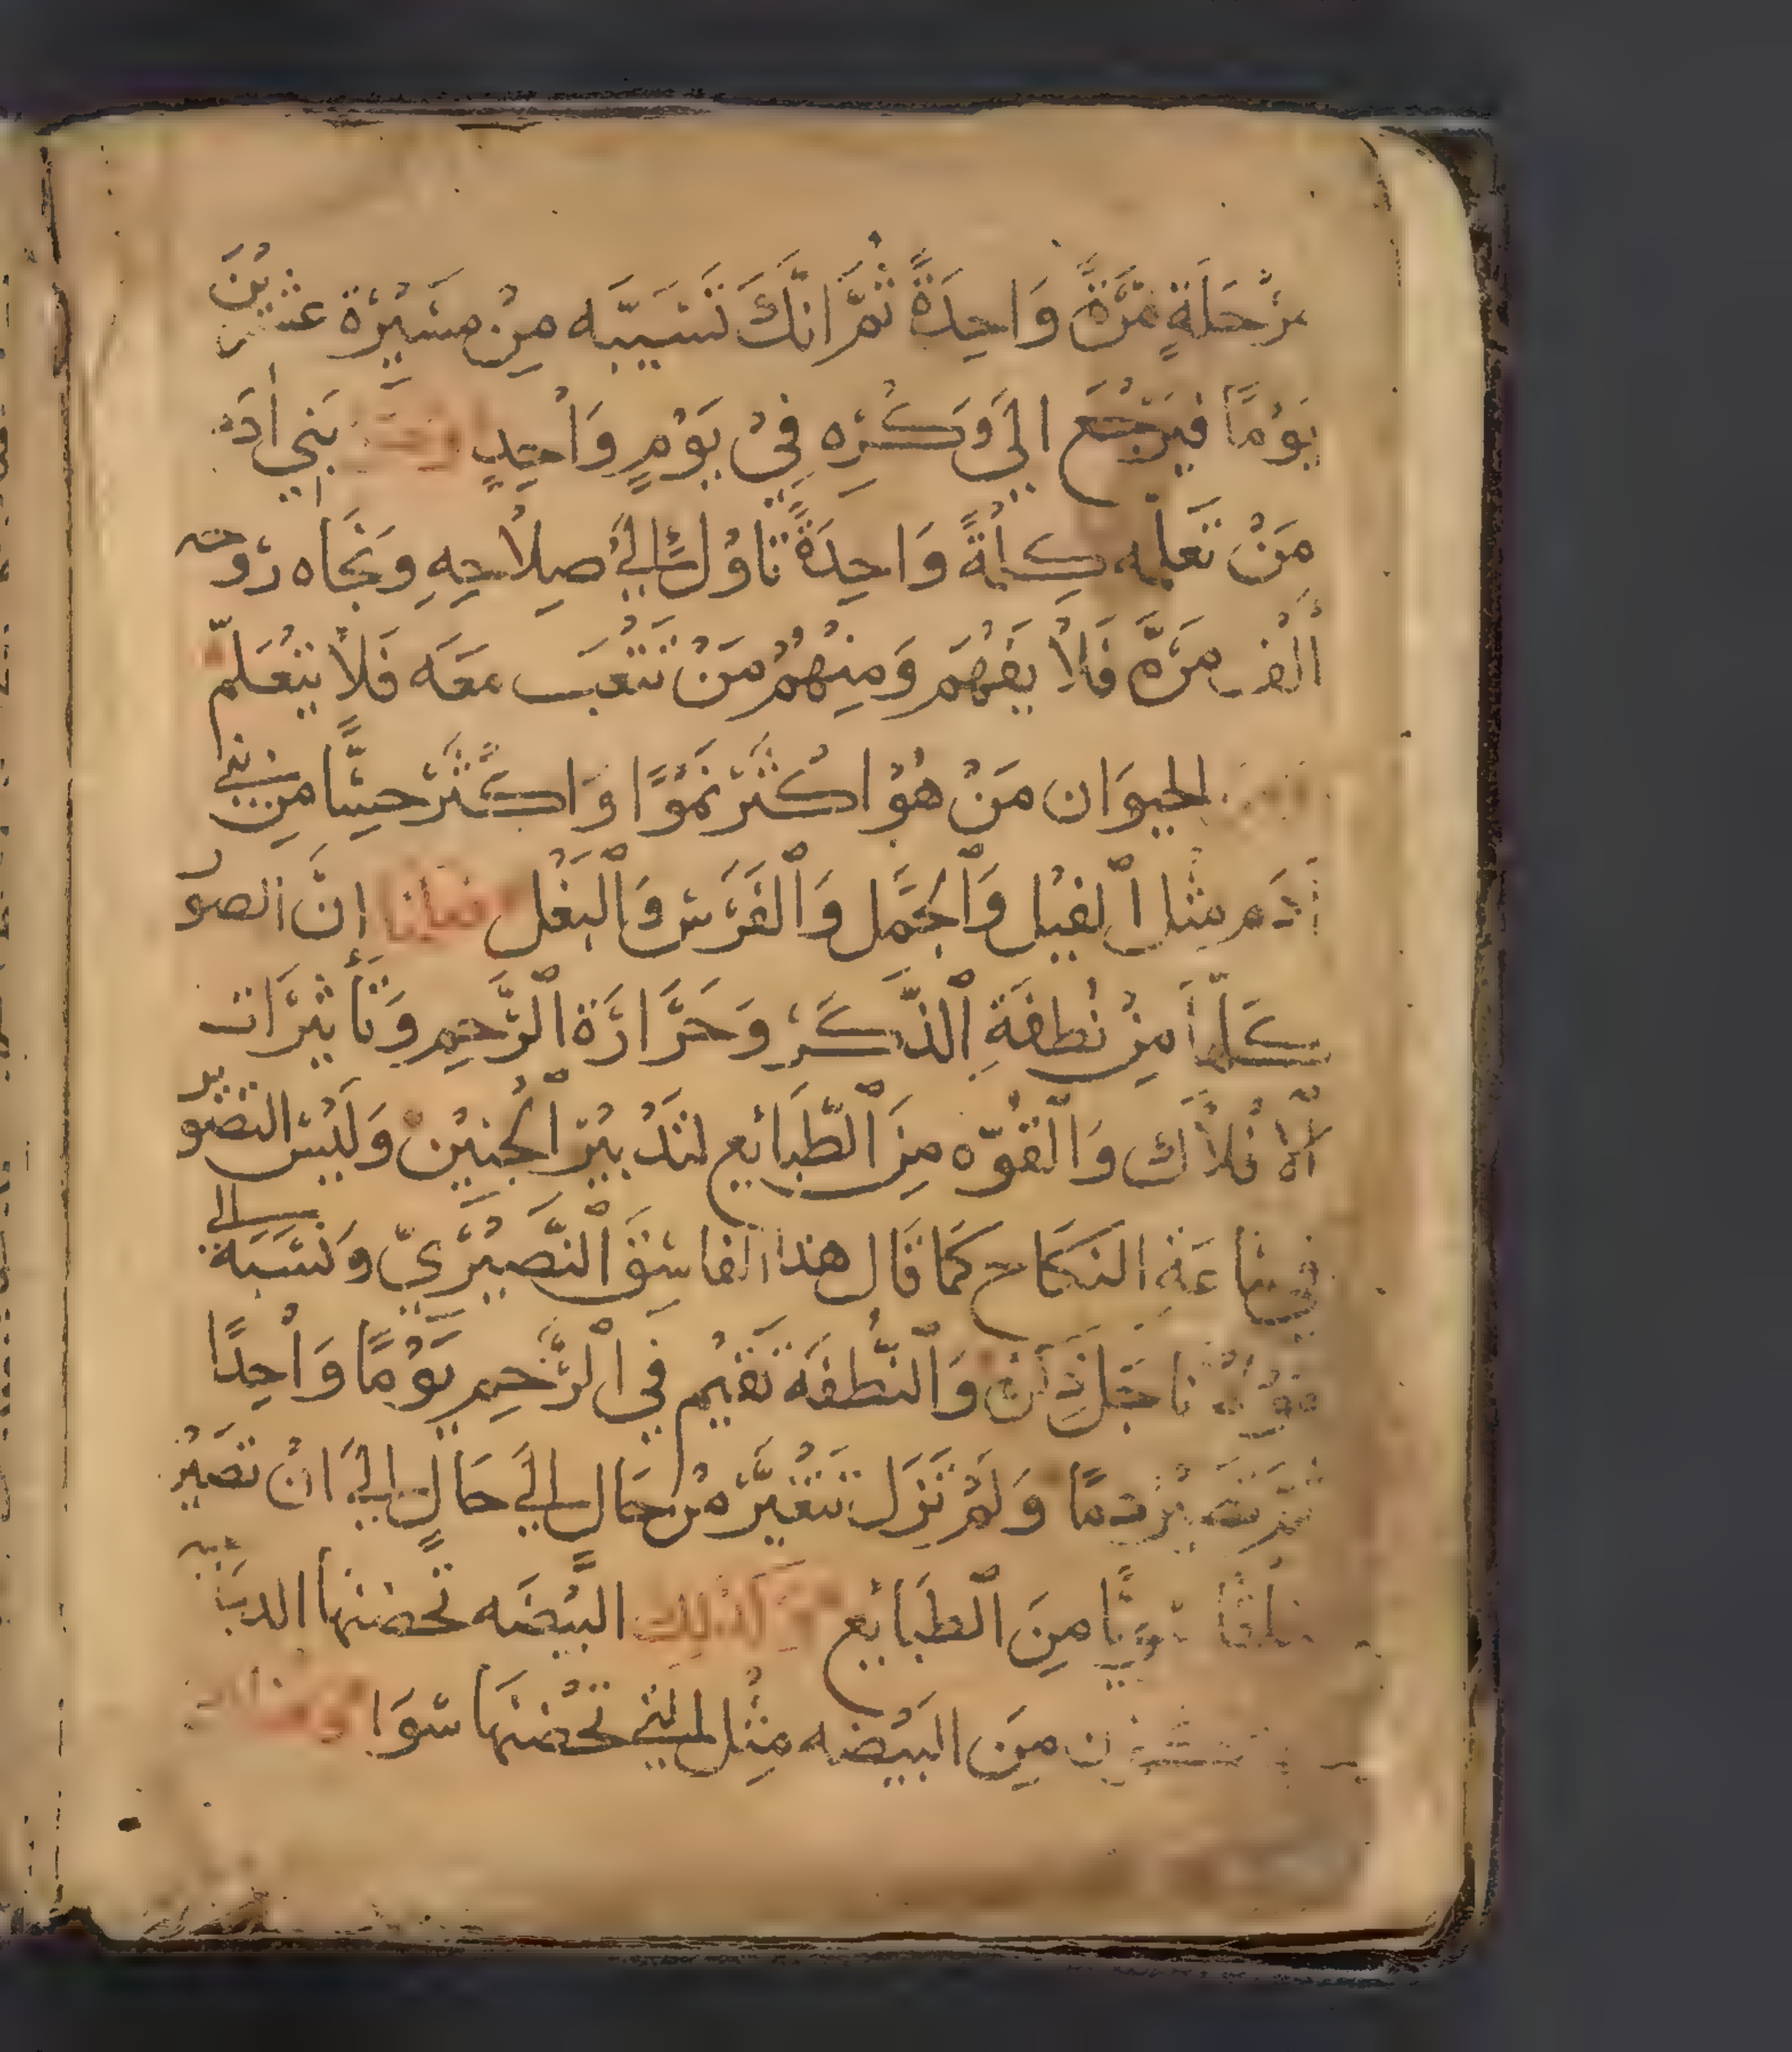 مَرْحَلَةٍ مَرَّةً وَاحِدَةً ثُمَّ انَّكَ تَسَيّبَه مِنْ مَسَيْرَة عشرين
يَوْمًا فيَرْجَع الَي وَكَرِه فِيْ يَوْمٍ وَاحِدٍ بَنِي ادَم
مَنْ تعَلمه كِلمةً وَاحِدَةً تاوُل الَيْ صِلاحِهِ وَنجَاه رُوحه
أَلْف مَرَّه فَلاْ يَفهَم وَمِنهُمُ مَنْ تَتْعَب مَعَه فَلاْ يتْعَلّم
الحيوَان مَنْ هُوْ اكْثَرْ نمَوًا وَاكَثَرْ حِسًّا مِن بني
ادَم مِثل الفيْل وَالجَمَل وَالفَرَسْ وَالْبَغْل فقلنا إنَّ الصو
كلّهَا مِنْ نُطفَةِ الذّكَرْ وَحَرَّارَة الرَّحِم وَتَأثيْرَات
الاْفْلاْك وَالقُوّه مِنَ الطّبَائِع لتَدْبيْر الْجنيْن وَلَيْسْ التصْوير
فِي سَاعَةِ النكَاح كمَا قَال هذا الفاسِقْ النّصَيْرَيّ وَنسَبَة الي
مَوْلانَا جَل ذكره وَالنّطفَة تقيْم في الرّحِم يَوْمًا وَاحِدًا
ثمّ تصَيْر دمًا وَلَمْ تزَل تتْغيَّرْ مْن حَالٍ الَي حَالٍ الَيَ انْ تصَيْر
خلقا سَويًّا مِنَ الطبَائِع وَكذلِك البيْضَه تحَضنها الدبَابيه
مِنَ البَيْضه مِثْل التي تحْضنهَا سَوَا